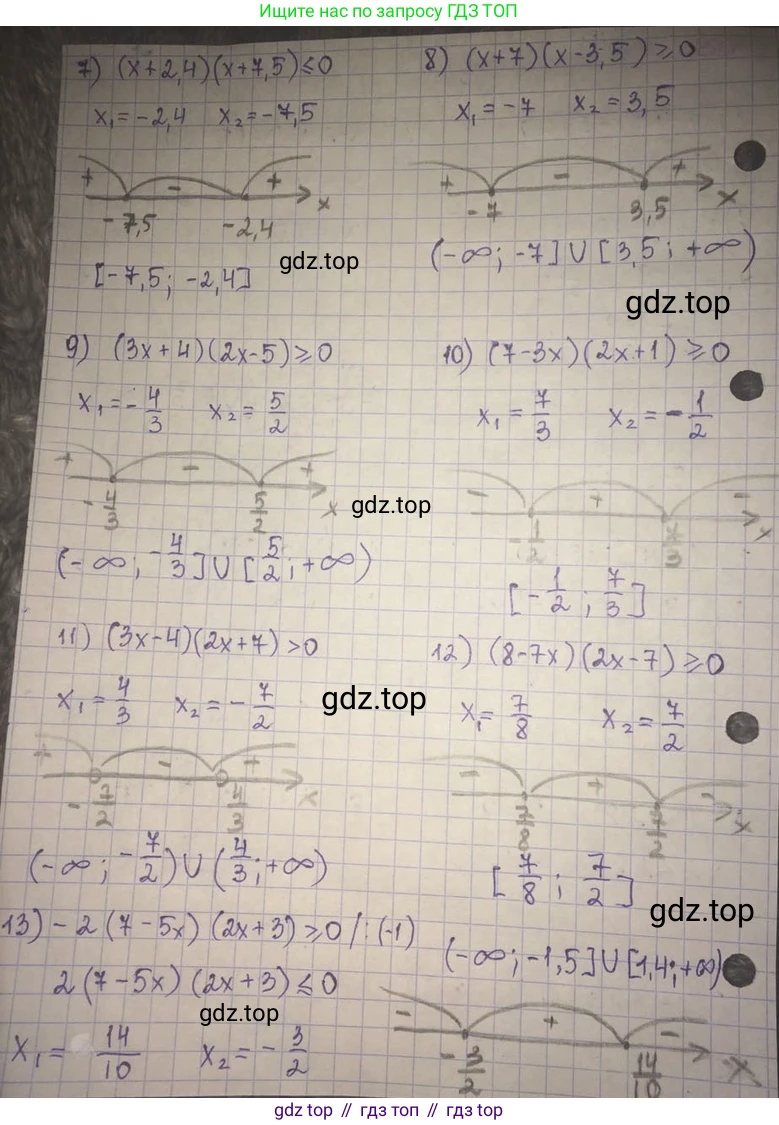 Ищите нас по запросу ГДЗ ТОП
7) (x+2,4)(x+7,5)≤0
x₁=-2,4 x₂=-7,5
+ - + x
-7,5 -2,4
[-7,5; -2,4]
gdz.top
8) (x+7)(x-3,5)≥0
x₁=-7 x₂=3,5
+ - + x
-7 3,5
(-∞; -7]∪[3,5; +∞)
gdz.top
9) (3x+4)(2x-5)≥0
x₁=-4/3 x₂=5/2
+ - + x
-4/3 5/2
gdz.top
(-∞; -4/3]∪[5/2; +∞)
10) (7-3x)(2x+1)≥0
x₁=7/3 x₂=-1/2
- + - x
-1/2 7/3
[-1/2; 7/3]
11) (3x-4)(2x+7)>0
x₁=4/3 x₂=-7/2
gdz.top
+ - + x
-7/2 4/3
(-∞; -7/2)∪(4/3; +∞)
12) (8-7x)(2x-7)≥0
x₁=7/8 x₂=7/2
- + - x
7/8 7/2
[7/8; 7/2]
gdz.top
13) -2(7-5x)(2x+3)≥0 /:(-1)
2(7-5x)(2x+3)≤0
gdz.top
x₁=14/10 x₂=-3/2
(-∞; -1,5]∪[1,4; +∞)
- + - x
-3/2 14/10
gdz.top // гдз топ // gdz.top